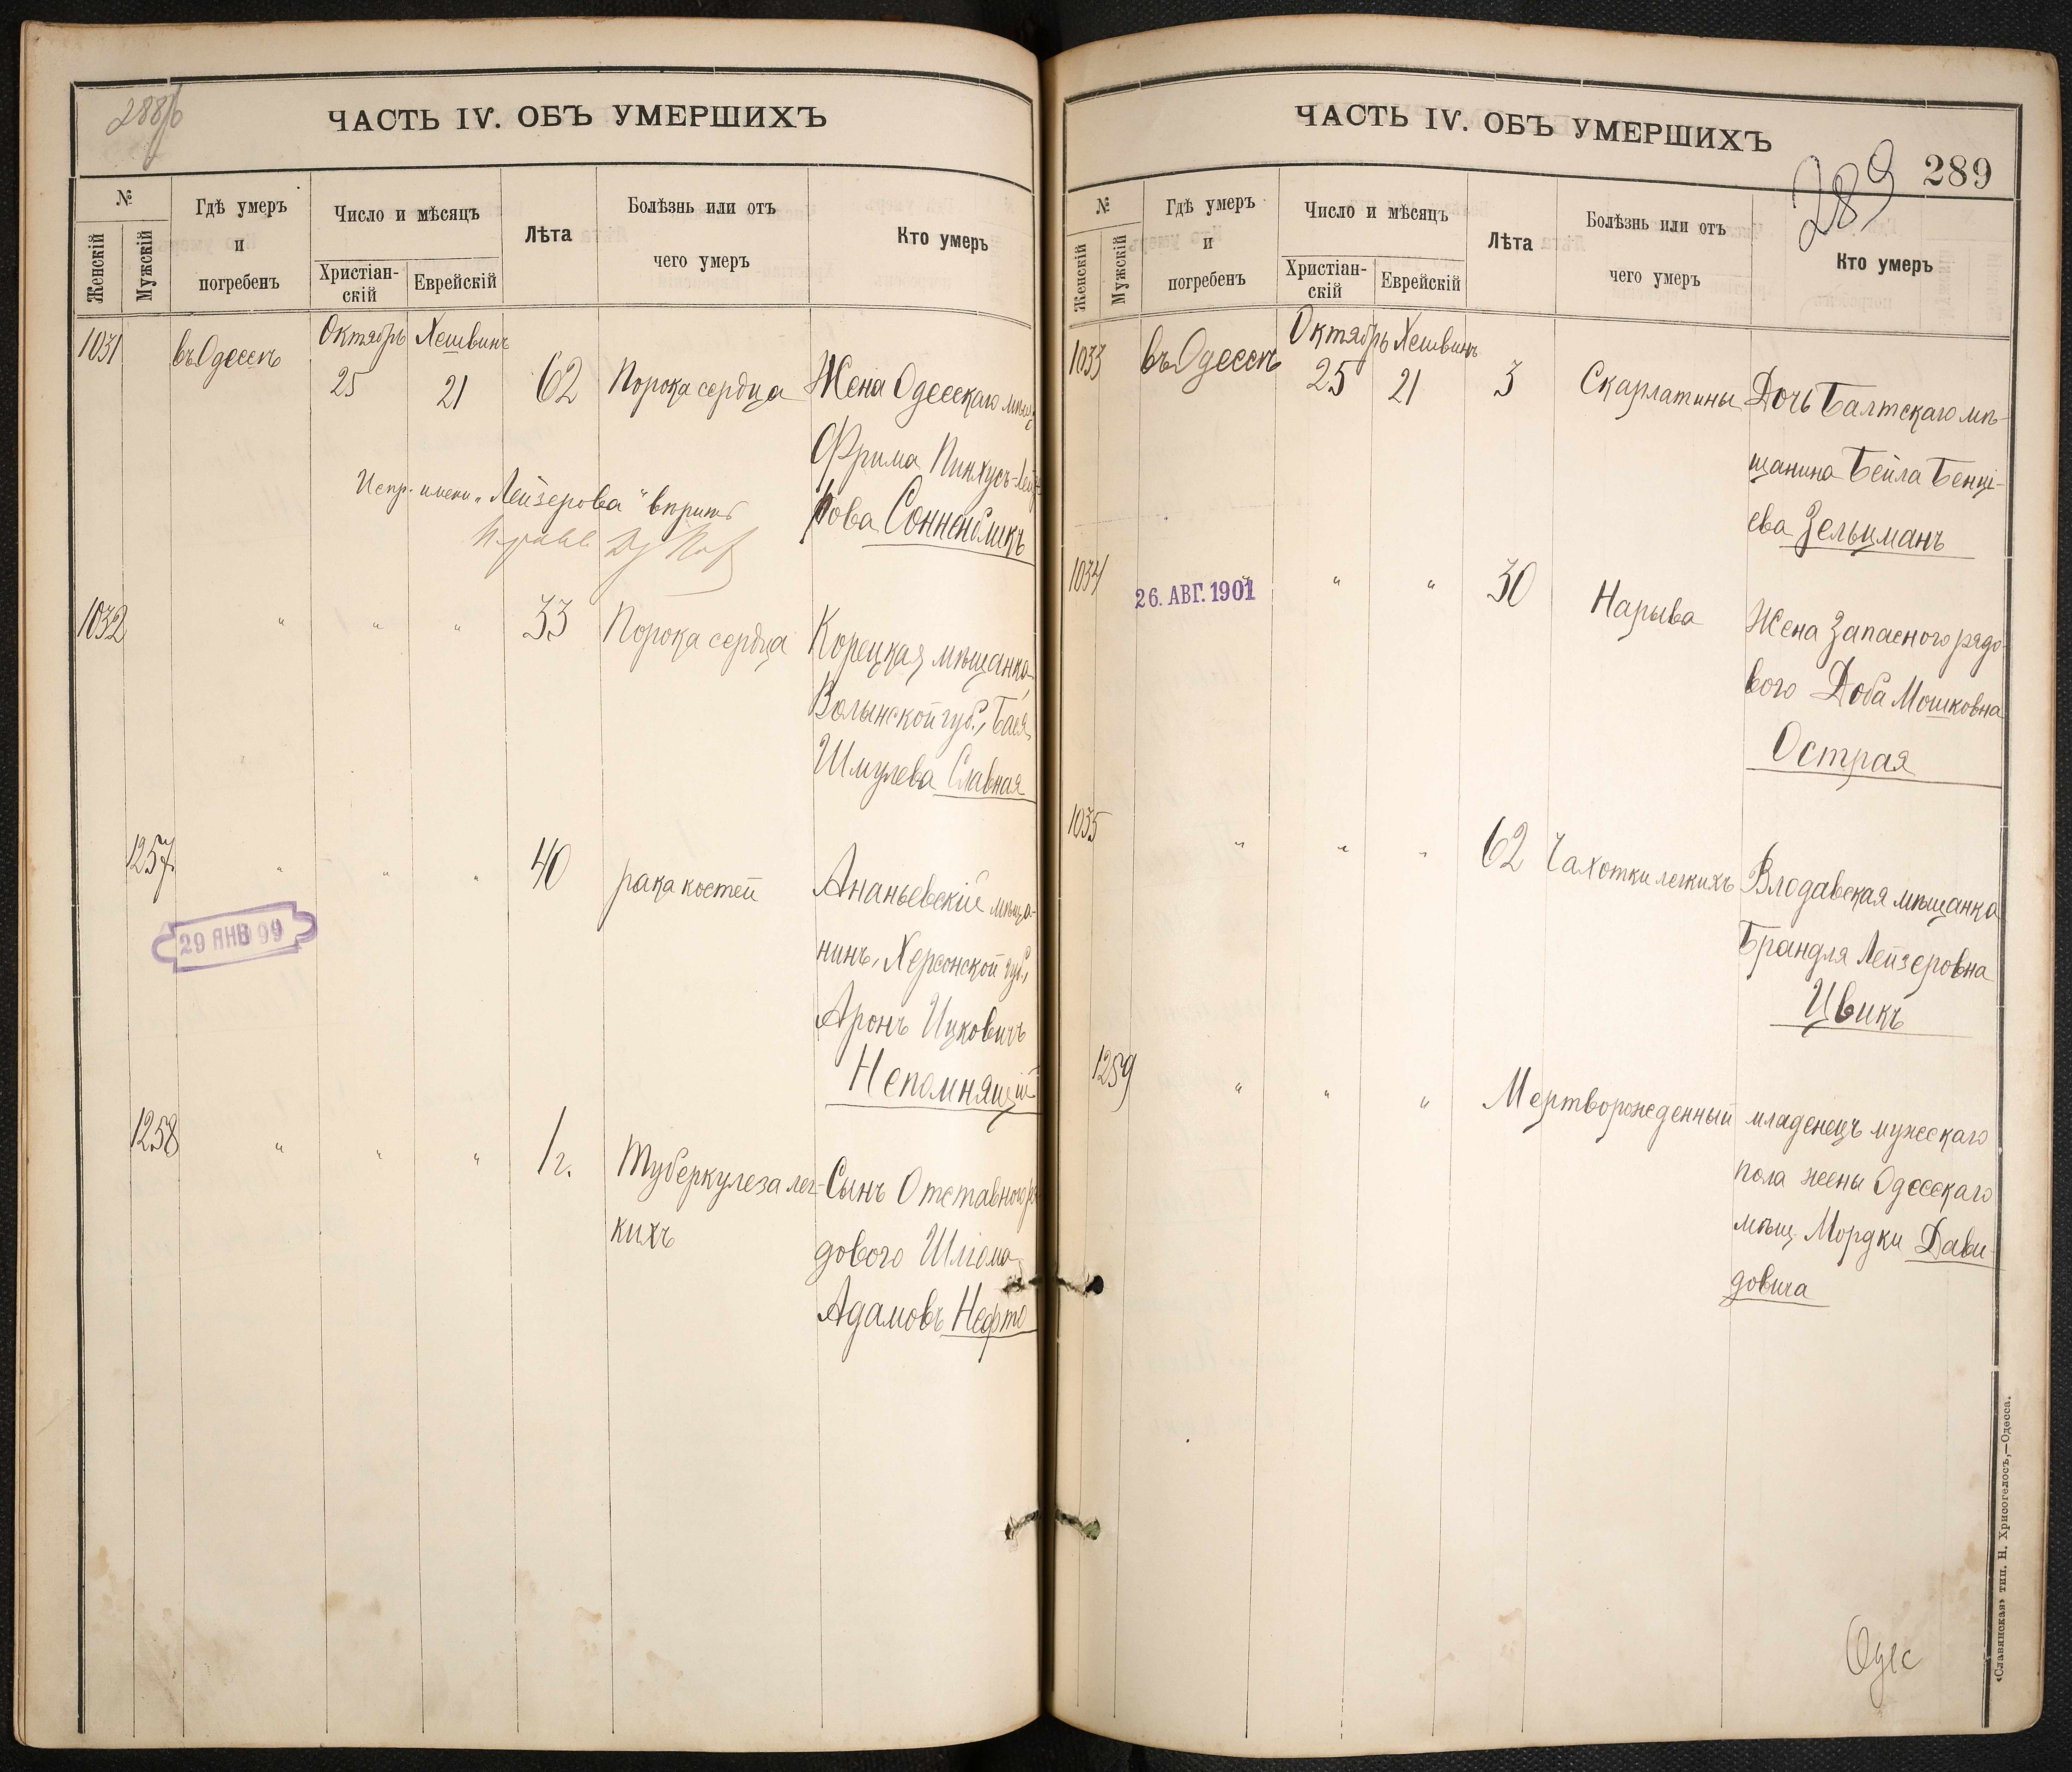 288/б
ЧАСТЬ IV. ОБЪ УМЕРШИХЪ
№
Женскій
Мужскій
Гдѣ умеръ
и
погребенъ
Число и мѣсяцъ
Христіан-
скій
Еврейскій
Лѣта
Болѣзнь или отъ
чего умеръ
Кто умеръ
1031
въ Одессѣ
Октябрь Хешвинъ
25 21 62 Порока сердца Жена Одесскаго мѣщ
Фрима Пинхусъ-Лейзе
рова Сонненбликъ
Испр. имени „Лейзерова“ вѣрить
1032 " " " 33 Порока сердца Корецкая мѣщанка,
Волынской губ., Бася
Шмулева Славная
1257 " " " 40 рака костей Ананьевскій мѣща-
нинъ, Херсонской губ.,
Аронъ Ицковичъ
Непомнящій
29 ЯНВ 99
1258 " " " 1 г. Туберкулеза лег-
кихъ
Сынъ Отставного ря
дового Шліома
Адамовъ Нафто
ЧАСТЬ IV. ОБЪ УМЕРШИХЪ
289
289
№
Женскій
Мужскій
Гдѣ умеръ
и
погребенъ
Число и мѣсяцъ
Христіан-
скій
Еврейскій
Лѣта
Болѣзнь или отъ
чего умеръ
Кто умеръ
1033 въ Одессѣ
Октябрь Хешвинъ
25 21 3 Скарлатины Дочь Балтскаго мѣ-
щанина Бейла Бенці-
ева Зельцманъ
1034
26. АВГ. 1901
" " 30 Нарыва Жена Запасного рядо-
вого Доба Мошковна
Острая
1035 " " " 62 Чахотки легкихъ Влодавская мѣщанка
Брандля Лейзеровна
Цвикъ
1259 " " " Мертворожденный младенецъ мужескаго
пола жены Одесскаго
мѣщ. Мордки Дави-
довича
Одес
«Славянская» тип. Н. Хрисогелосъ,—Одесса.